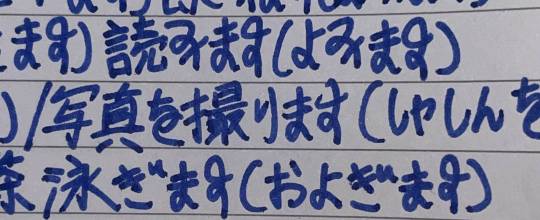 ます)読みます(よみます)
)/写真を撮ります(しゃしんを
茶泳ぎます(およぎます)